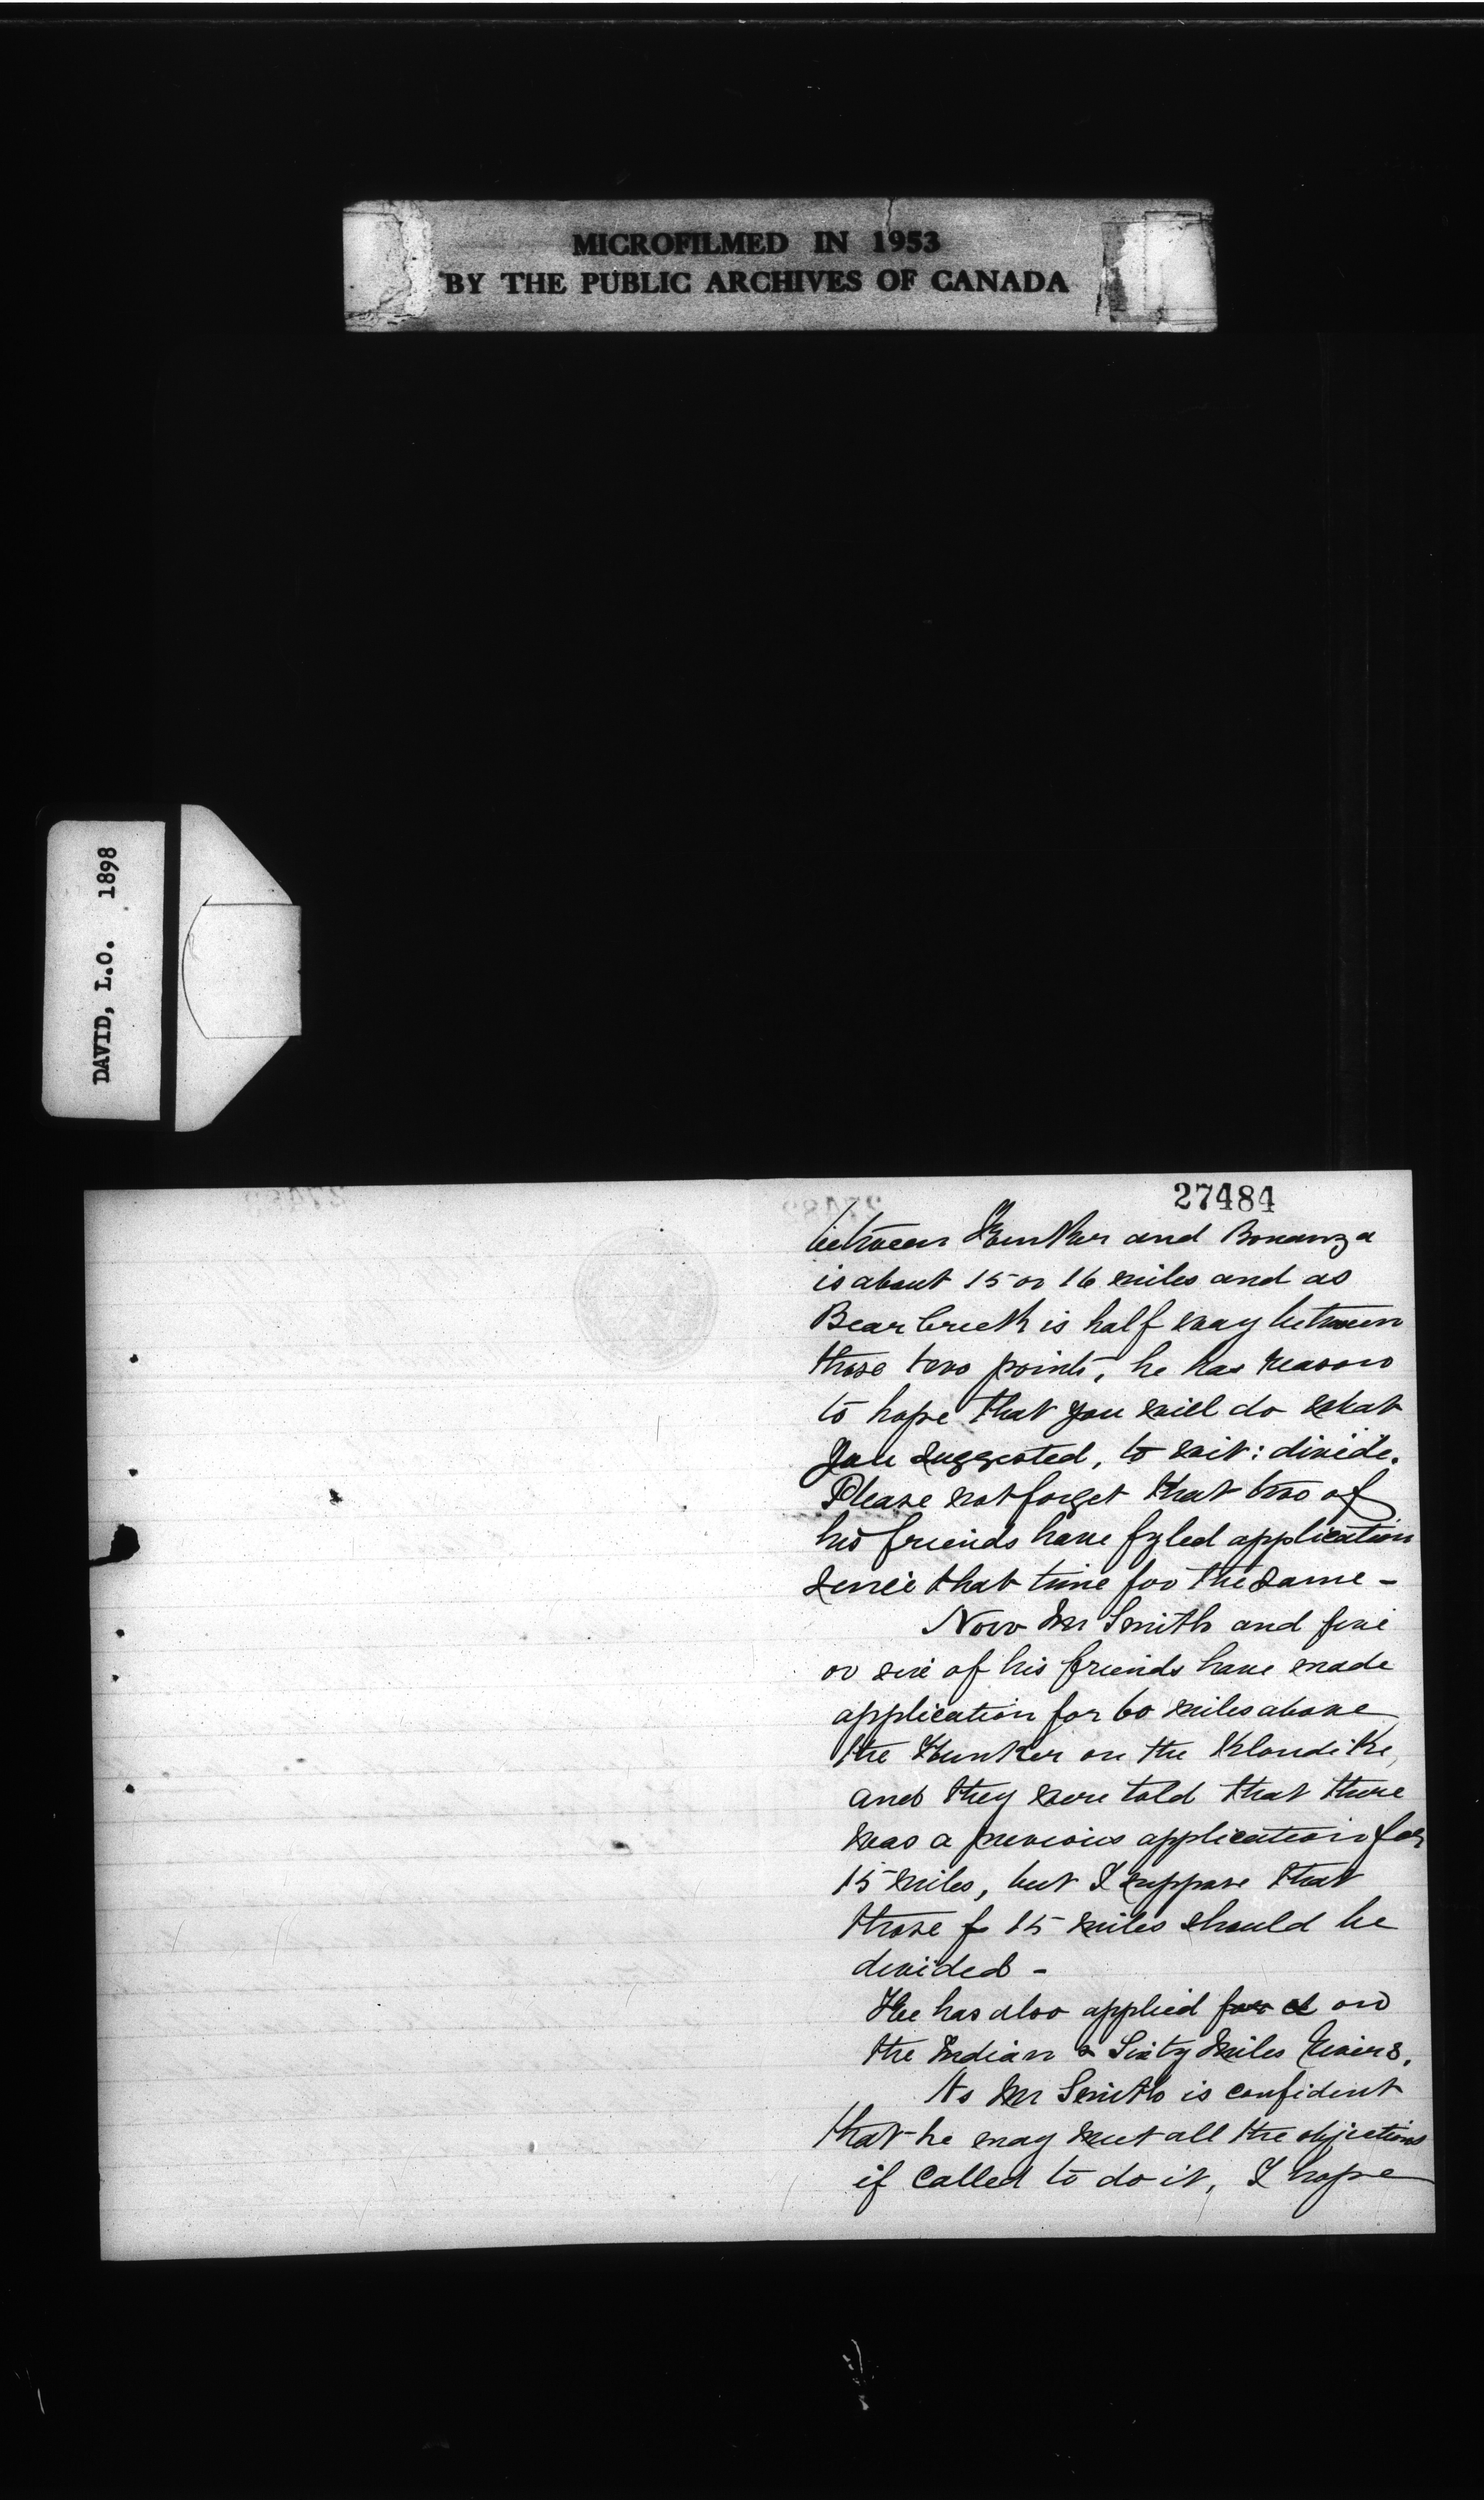 MICROFILMED IN 1953
BY THE PUBLIC ARCHIVES OF CANADA
DAVID, L.O. 1898
27484
between Hunker and Bonanza
is about 15 or 16 miles and as
Bear Creek is half way between
those two points, he has reason
to hope that you will do what
you suggested, to wit: divide.
Please not forget that two of
his friends have fyled application
since that time for the same -
Now Mr Smith and five
or six of his friends have made
application for 60 miles above
the Hunker on the Klondike,
and they were told that there
was a previous application for
15 miles, but I suppose that
those f 15 miles should be
divided -
He has also applied for on
the Indian & Sixty Miles Rivers.
As Mr Smith is confident
that he may meet all the objections
if called to do it, I hope